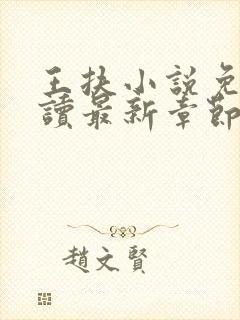 王扶小說免
讀最新章節
趙文賢